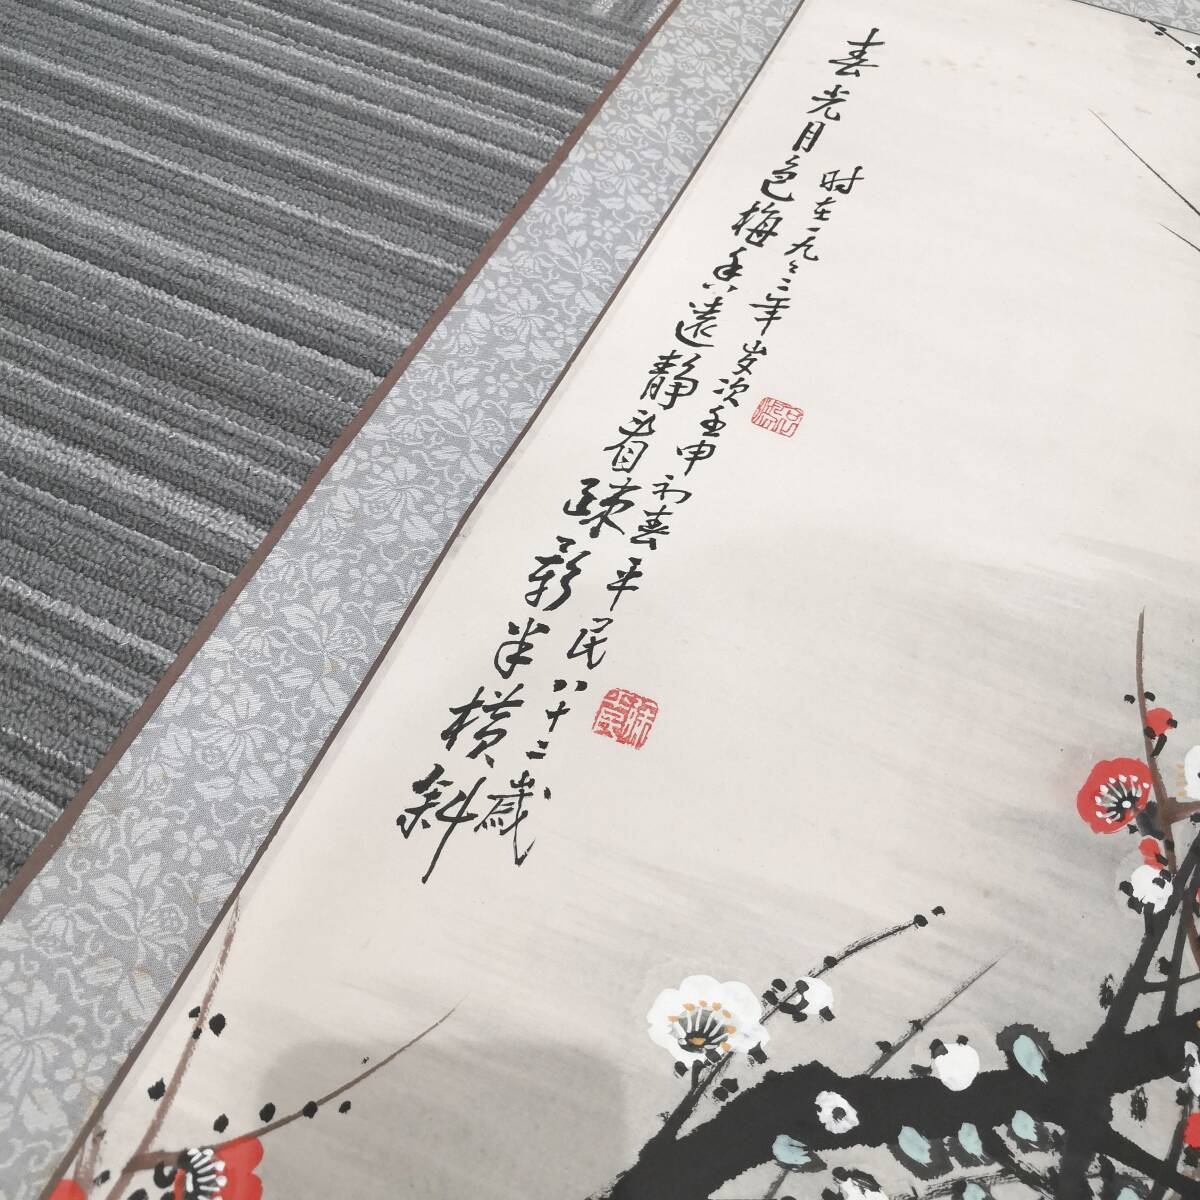 春光月色梅香遠靜看疎影半横斜
时在一九々二年岁次壬申初春平民八十二歲